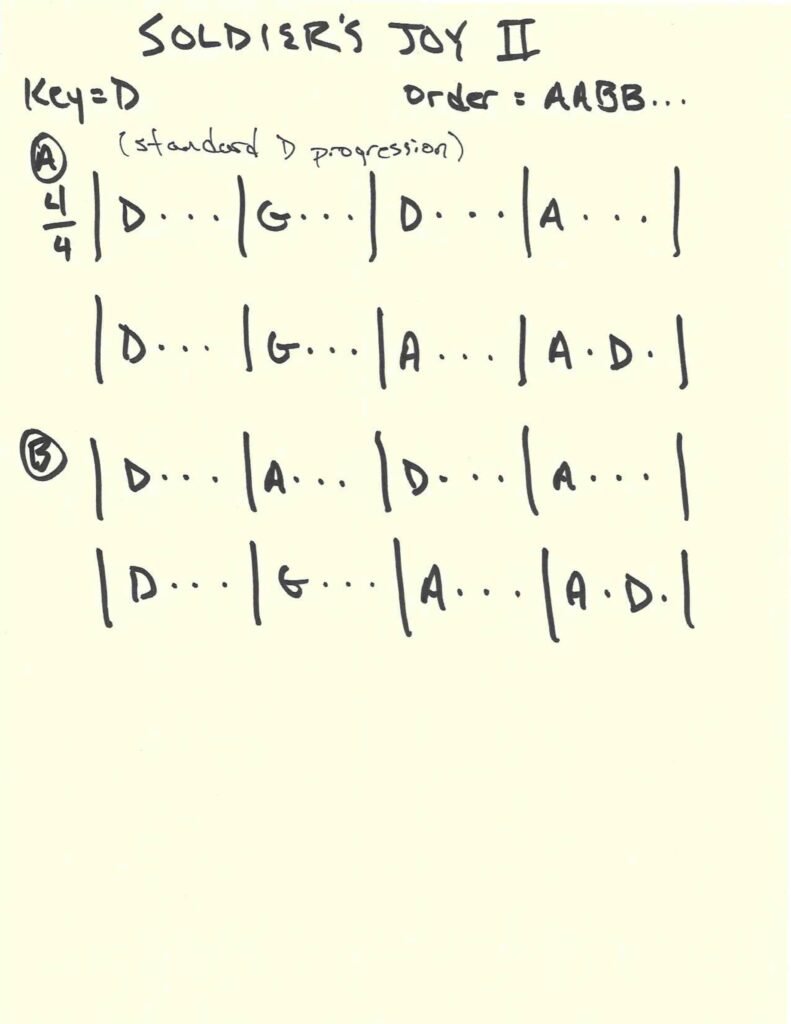 SOLDIER'S JOY II
Key=D Order = AABB...
A (standard D progression)
4/4 | D... | G... | D... | A... |
| D... | G... | A... | A.D. |
B | D... | A... | D... | A... |
| D... | G... | A... | A.D. |